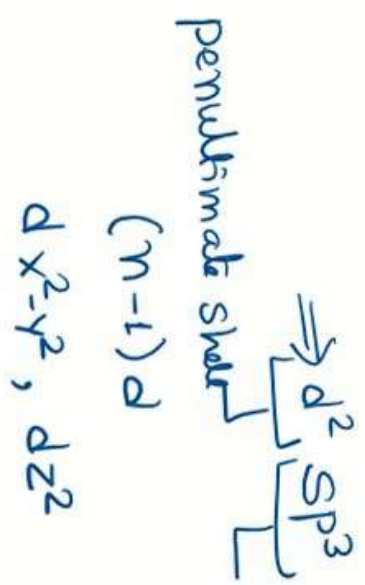 ⇒ d² sp³
penultimate shell
(n-1) d
d x²-y², dz²